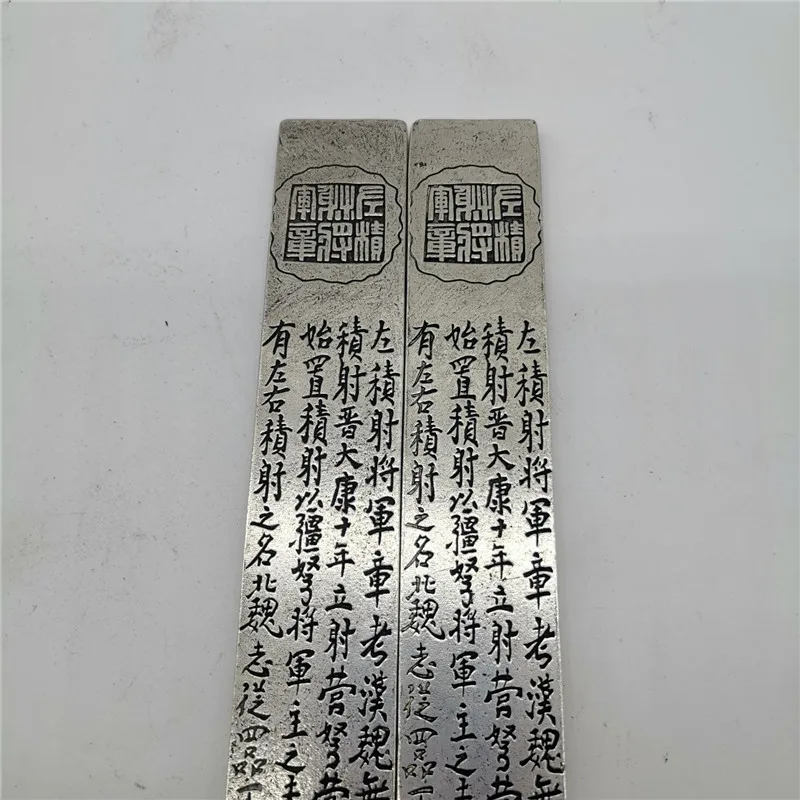 左積
射將
軍章
左積射將軍章考漢魏無
積射晋大康十年立射營弩營
始置積射以疆弩將軍主之
有左右積射之名北魏志從四品
左積
射將
軍章
左積射將軍章考漢魏無
積射晋大康十年立射營弩營
始置積射以疆弩將軍主之
有左右積射之名北魏志從四品